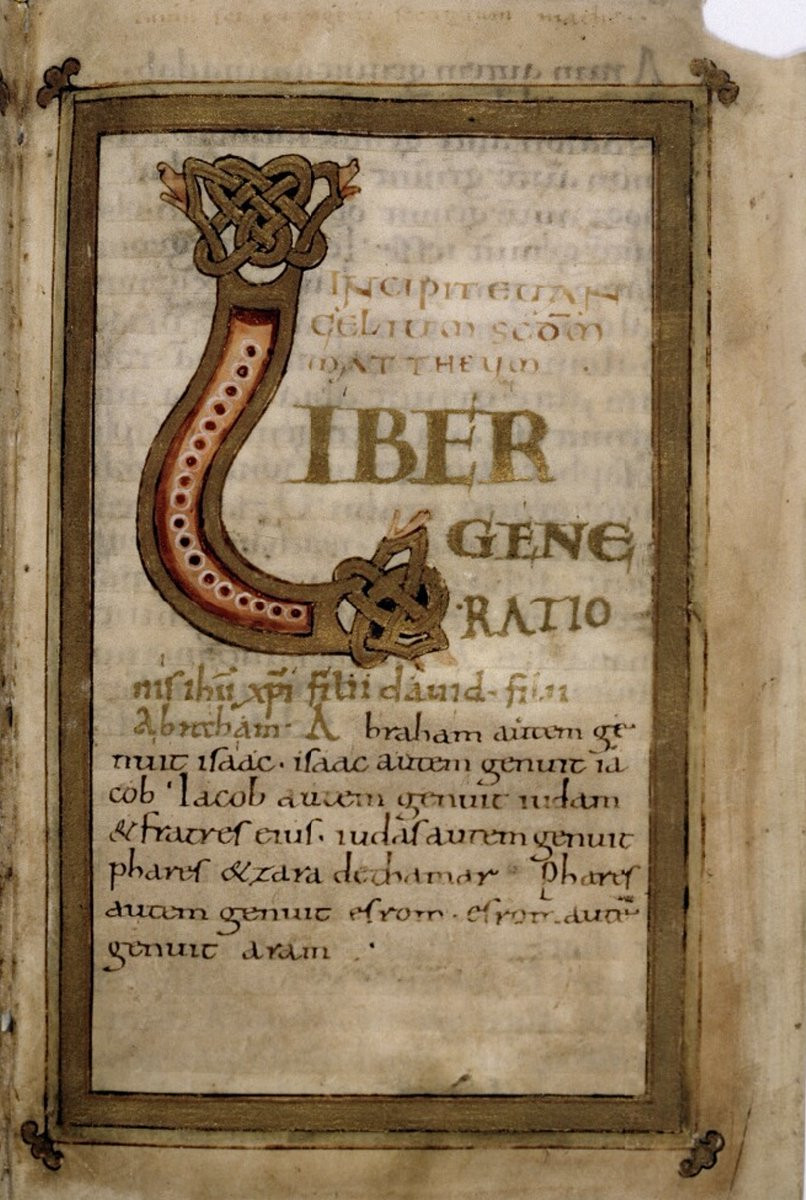 INCIPIT EUAN
GELIUM SCDM
MATTHEUM
LIBER
GENE
RATIO
nis ihu xpi filii dauid. filii
Abraham. A braham autem ge
nuit isaac. isaac autem genuit ia
cob. Iacob autem genuit iudam
& fratres eius. iudas autem genuit
phares & zara de thamar. Phares
autem genuit esrom. esrom. autē
genuit aram.